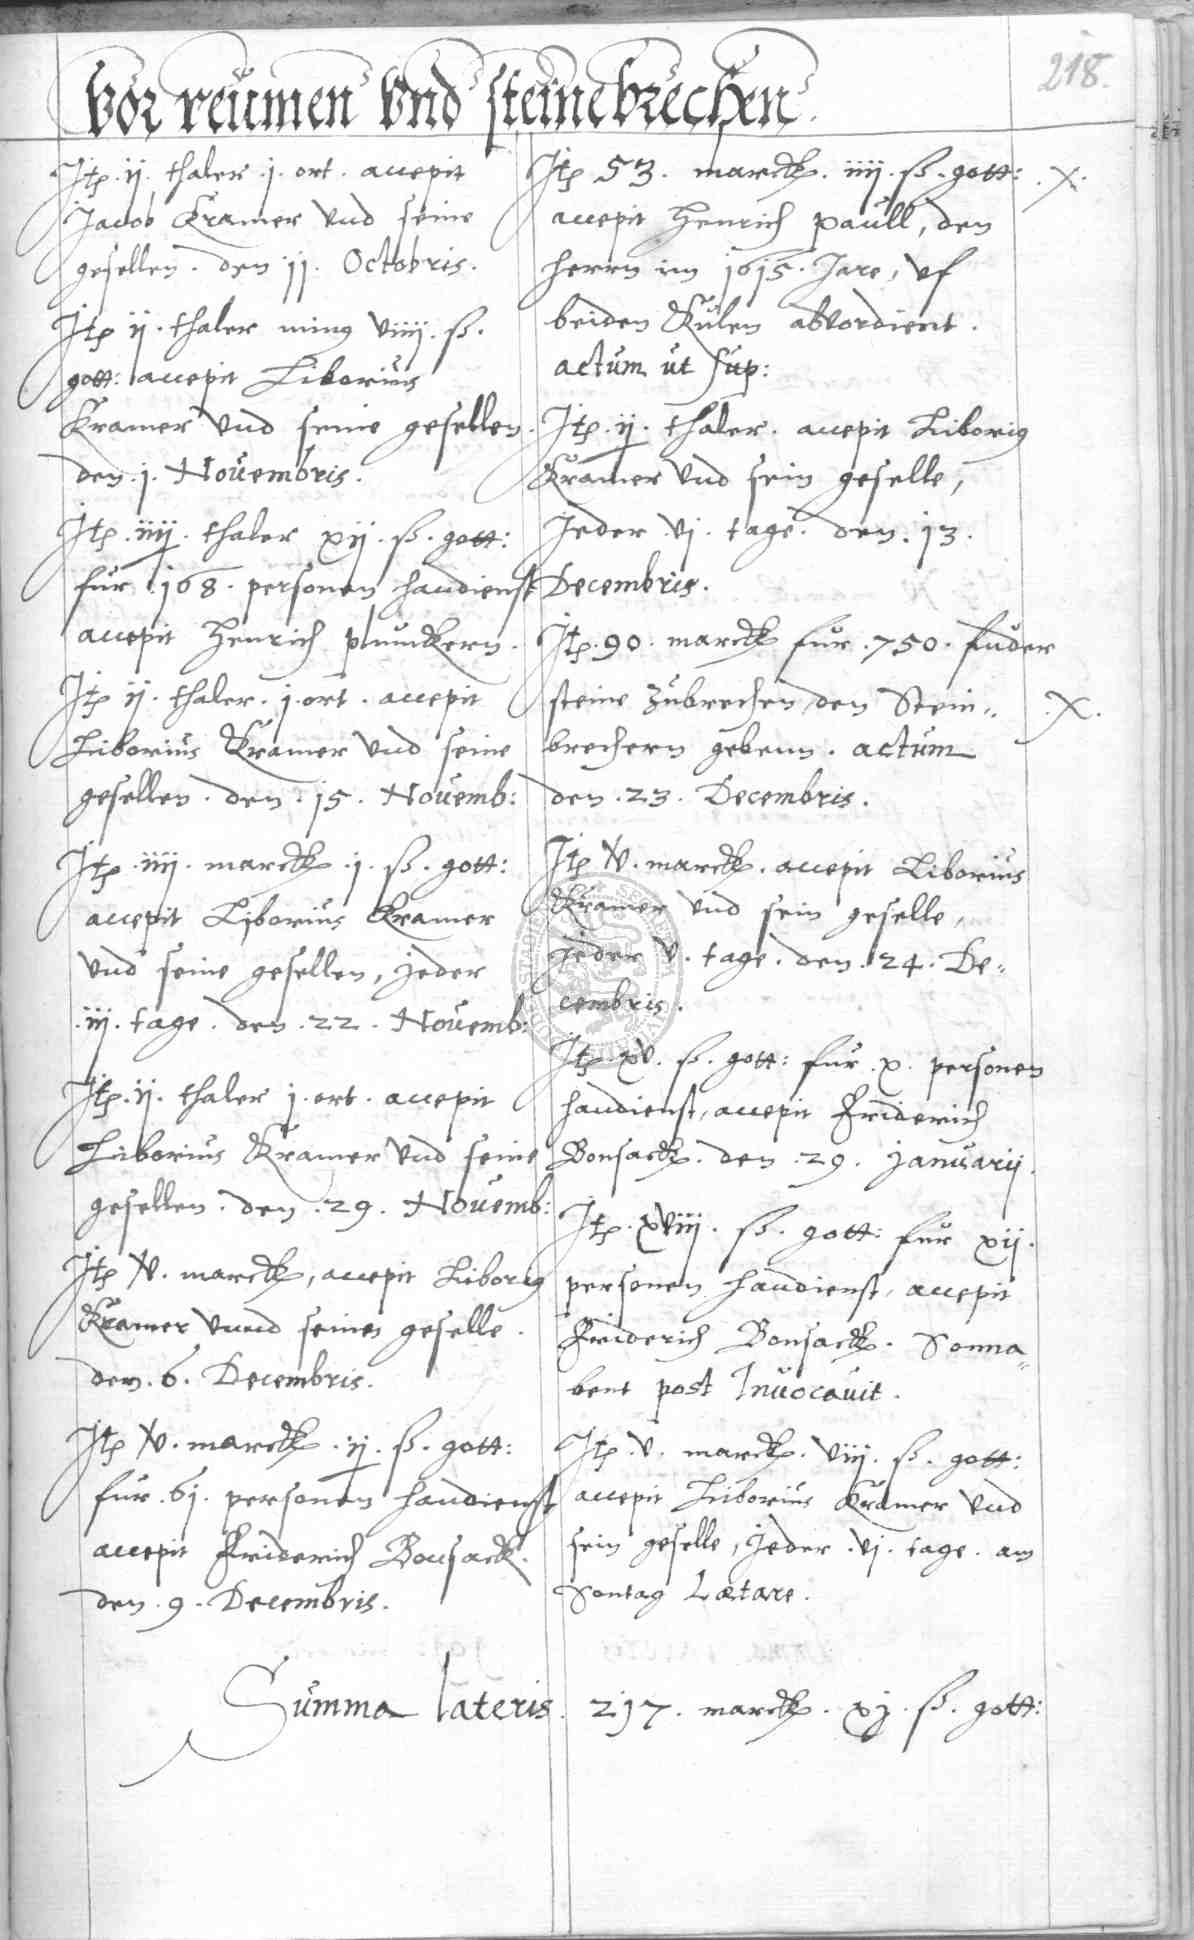 218.
Vor reumen Vnd steinebrechen.
Itp. ij. thaler .j. ort. accepit
Jacob Kramer Vnd seine
gesellen. den 11. Octobris.
Itp ij. thaler ming viiij. ß.
gott: accepit Liborius
Kramer Vnd seine gesellen.
den. 1. Nouembris.
Itp. iiij. thaler xij. ß. gott:
fur .168. personen handienst
accepit Henrich plunckern.
Itp ij. thaler. j. ort. accepit
Liborius Kramer Vnd seine
gesellen. den. 15. Nouemb:
Itp. iiij. marck .j. ß. gott:
accepit Liborius Kramer
Vnd seine gesellen, jeder
.iij. tage. den .22. Nouemb:
Itp. ij. thaler j. ort. accepit
Liborius Kramer Vnd seine
gesellen. den .29. Nouemb:
Itp V. marck, accepit Liborig
Kramer Vnnd seinen geselle.
den. 6. Decembris.
Itp V. marck .ij. ß. gott:
fur .61. personen handienst
accepit Friderich Bonsack.
den .9. Decembris.
Itp 53. marck. iiij. ß. gott: .X.
accepit Henrich Paull, den
herrn im 1615. Jare, vf
beiden Kulen abVordient.
actum ut sup:
Itp. ij. thaler. accepit Liborig
Kramer Vnd sein geselle,
Jeder .vj. tage. den. 13.
Decembris.
Itp. 90. marck fur .750. fuder
steine zubrechen, den Stein= .X.
brechern gebenn. actum
den .23. Decembris.
Itp V. marck. accepit Liborius
Kramer Vnd sein geselle,
jeder V. tage. den .24. De=
cembris.
Itp. xV. ß. gott: fur .x. personen
handienst, accepit Friderich
Bonsack. den .29. januarij.
Itp. xViij. ß. gott: fur xij.
personen handienst, accepit
Friderich Bonsack. Sonna=
bent post Inuocauit.
Itp. V. marck. Viij. ß. gott:
accepit Liborius Kramer Vnd
sein geselle, Jeder .vj. tage. am
Sontag Lætare.
Summa lateris. 217. marck. xj. ß. gott: